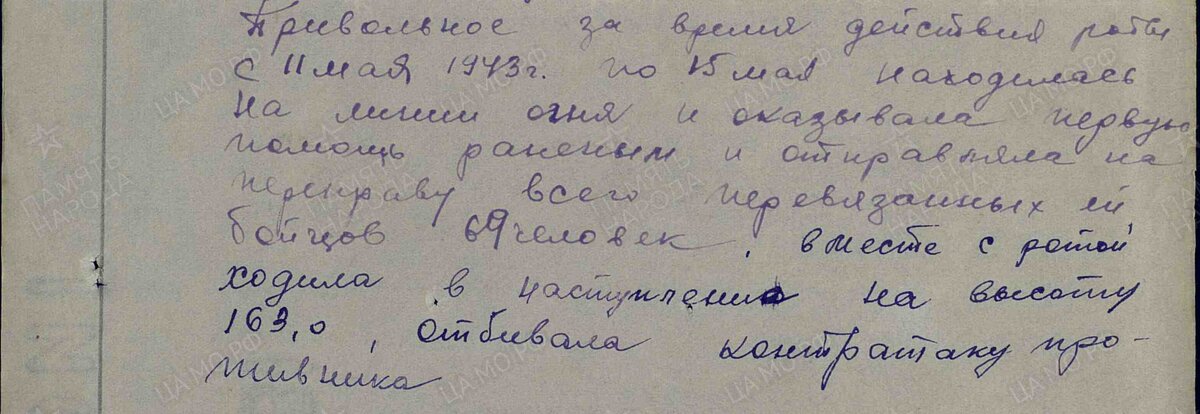 Привольное за время действия роты
с 11 мая 1943г. по 15 мая находилась
на линии огня и оказывала первую
помощь раненым и отправляла на
переправу всего перевязанных ей
бойцов 69 человек, вместе с ротой
ходила в наступление на высоту
163,0, отбивала контратаку про-
тивника